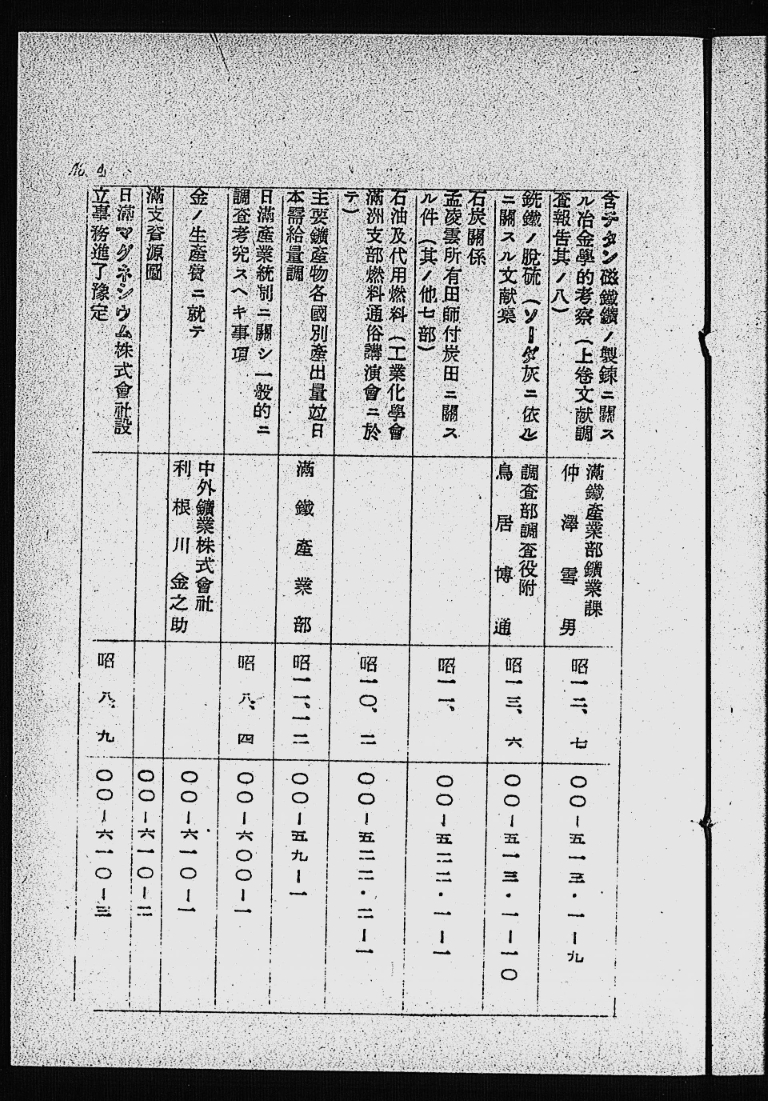 No. 4
含チタン磁鐵鑛ノ製鍊ニ關ス
ル冶金學的考察（上卷文献調
査報告其ノ八）
滿鐵產業部鑛業課
仲澤雪男
昭一二、七
〇〇―五一三・一―九
銑鐵ノ脫硫（ソーダ灰ニ依ル）
ニ關スル文献集
調査部調査役附
鳥居博通
昭一三、六
〇〇―五一三・一―一〇
石炭關係
孟凌雲所有田師付炭田ニ關ス
ル件（其ノ他七部）
昭一一、
〇〇―五二二・一―一
石油及代用燃料（工業化學會
滿洲支部燃料通俗講演會ニ於
テ）
昭一〇、二
〇〇―五二二・二―一
主要鑛產物各國別產出量竝日
本需給量調
滿鐵產業部
昭一一、一二
〇〇―五九―一
日滿產業統制ニ關シ一般的ニ
調査考究スヘキ事項
昭八、四
〇〇―六〇〇―一
金ノ生產費ニ就テ
中外鑛業株式會社
利根川金之助
〇〇―六一〇―一
滿支資源圖
〇〇―六一〇―二
日滿マグネシウム株式會社設
立事務進了豫定
昭八、九
〇〇―六一〇―三